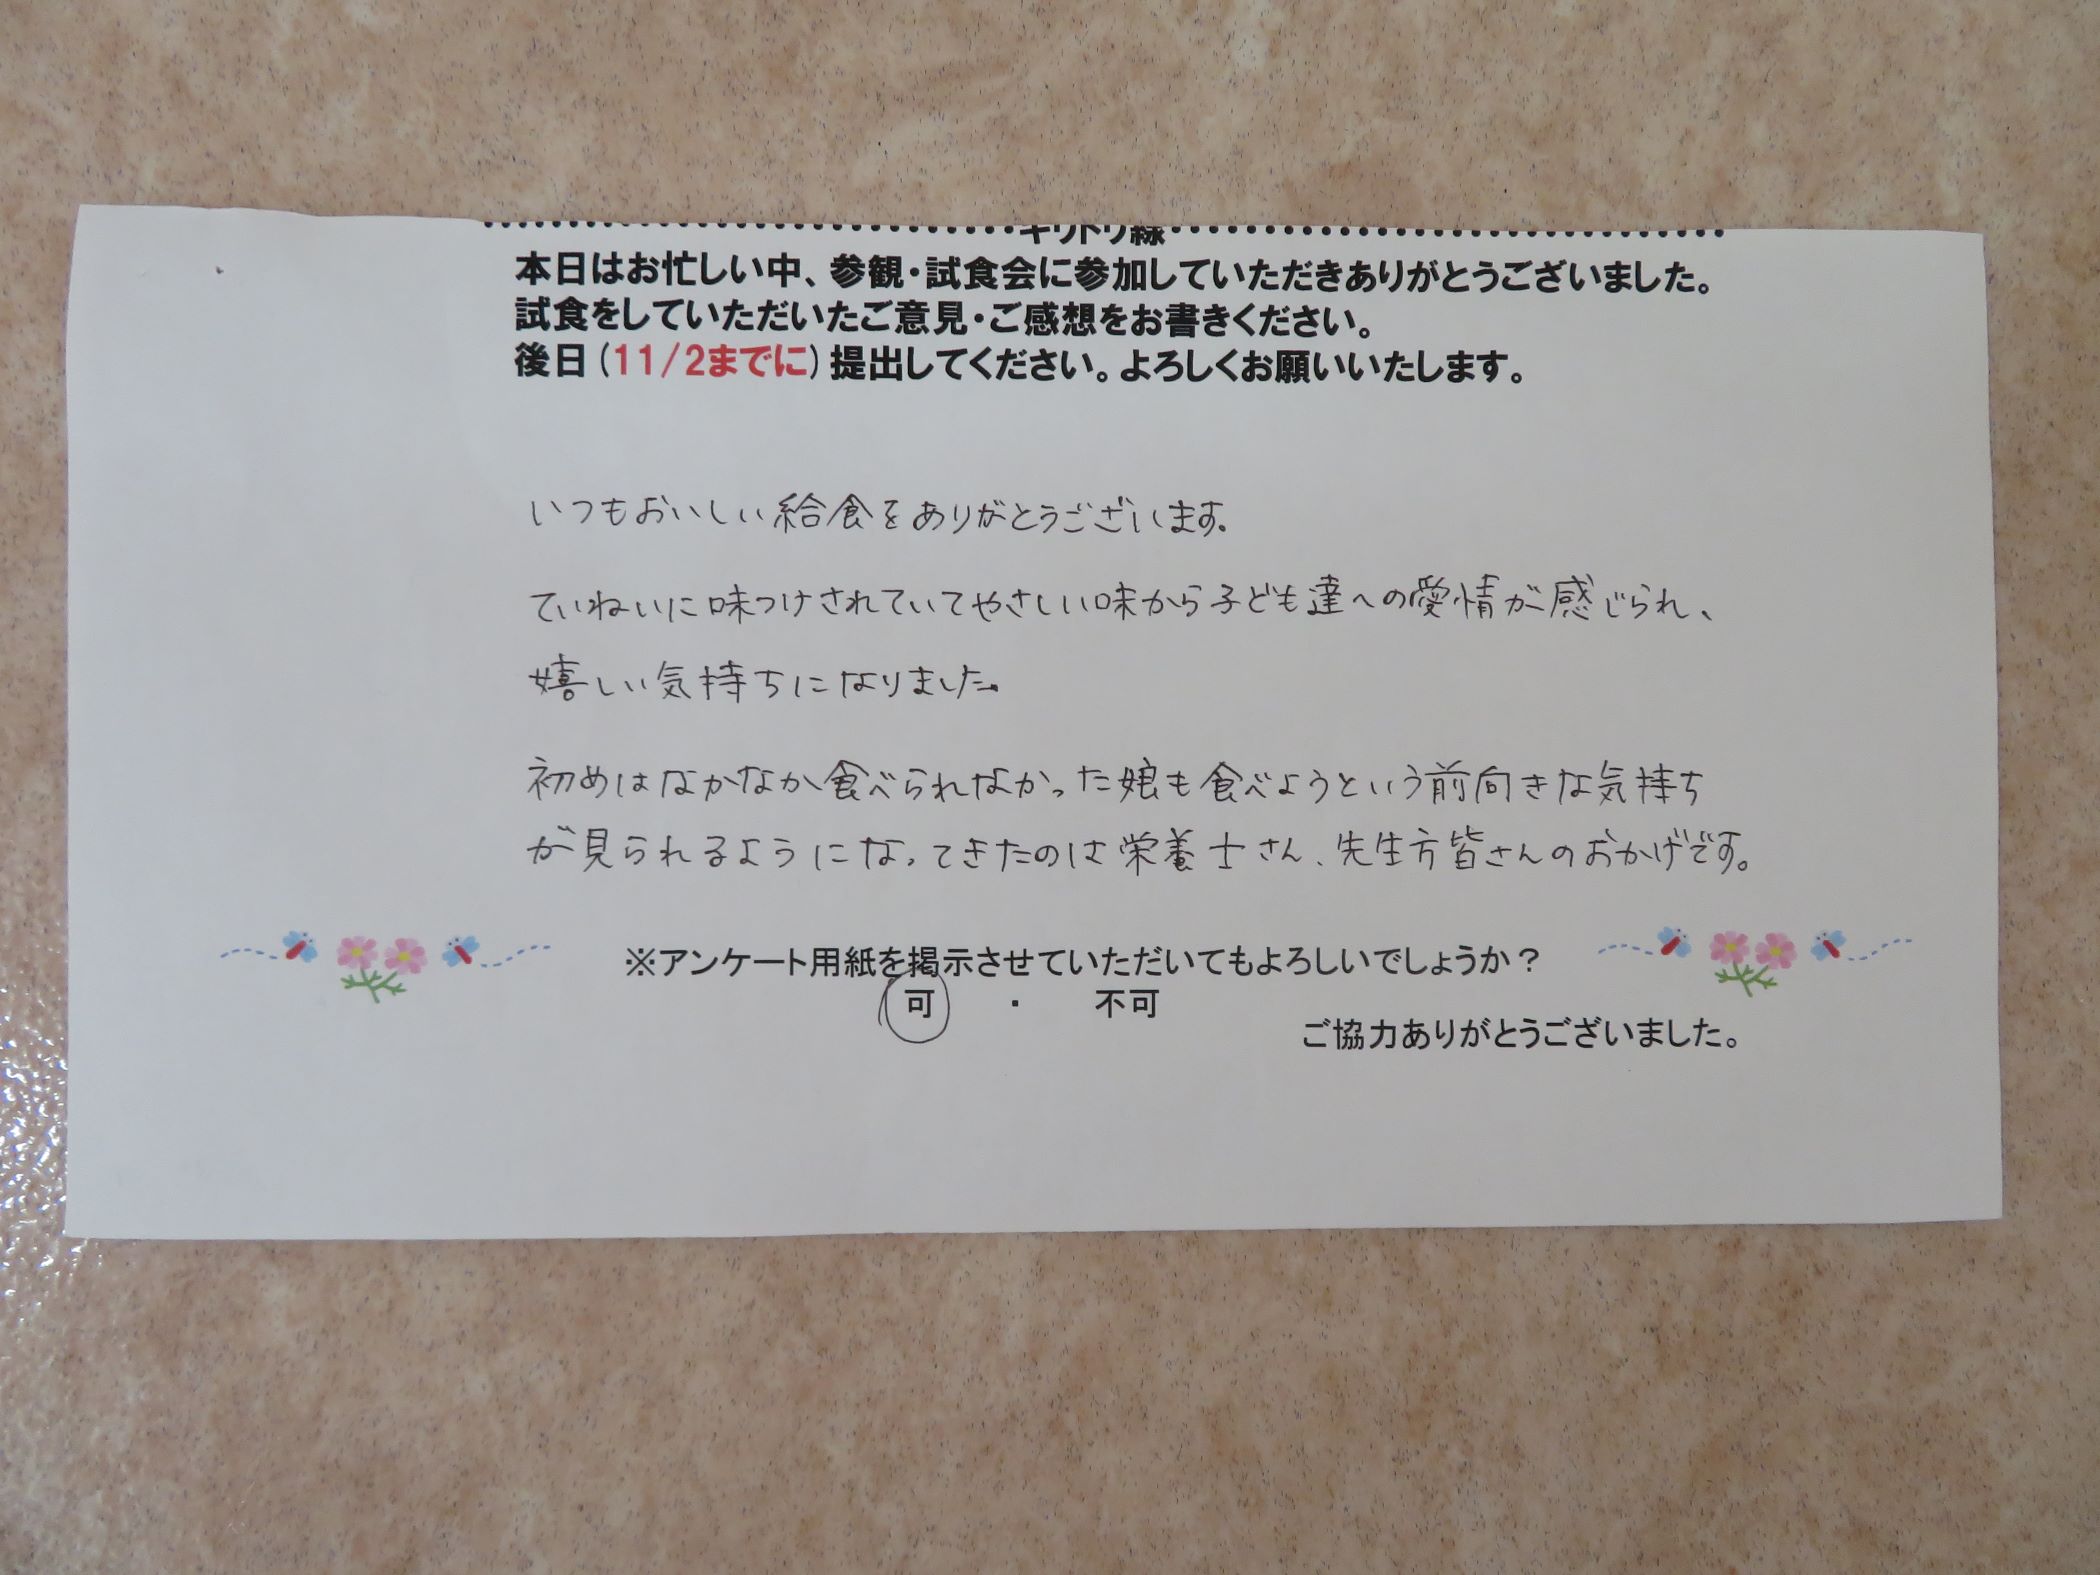 キリトリ線
本日はお忙しい中、参観・試食会に参加していただきありがとうございました。
試食をしていただいたご意見・ご感想をお書きください。
後日(11/2までに)提出してください。よろしくお願いいたします。
いつもおいしい給食をありがとうございます。
ていねいに味つけされていてやさしい味から子ども達への愛情が感じられ、
嬉しい気持ちになりました。
初めはなかなか食べられなかった娘も食べようという前向きな気持ち
が見られるようになってきたのは栄養士さん、先生方皆さんのおかげです。
※アンケート用紙を掲示させていただいてもよろしいでしょうか?
可 ・ 不可
ご協力ありがとうございました。